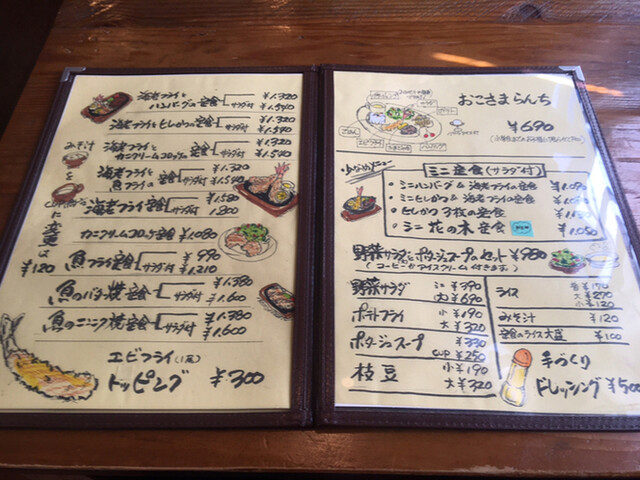 海老フライと
ハンバーグの定食 ¥1.320
サラダ付 ¥1.540
海老フライとヒレかつの定食 ¥1.320
サラダ付 ¥1.540
海老フライと
カニクリームコロッケの定食 ¥1.320
サラダ付 ¥1.540
海老フライと
魚フライの定食 ¥1.320
サラダ付 ¥1.540
海老フライ定食 ¥1.580
サラダ付 1.800
カニクリームコロッケ定食 ¥1.080
魚フライ定食 ¥990
サラダ付 ¥1.210
魚のバター焼定食 ¥1.380
サラダ付 ¥1.600
魚のニンニク焼定食 ¥1.380
サラダ付 ¥1.600
エビフライ(1尾)
トッピング ¥300
みそ汁
に変更は
¥120
おこさまらんち
¥690
ミニ定食(サラダ付)
・ミニハンバーグ & 海老フライの定食
・ミニヒレかつ & 海老フライの定食
・ヒレかつ3枚の定食
・ミニ花の木定食
野菜サラダとポタージュスープのセット ¥980
(コーヒーかアイスクリーム付きます。)
野菜サラダ ミニ ¥390
(大) ¥690
ポテトフライ 小 ¥190
大 ¥320
ポタージュスープ ¥330
CUP ¥250
枝豆 小 ¥190
大 ¥320
ライス 普 ¥170
大 ¥270
小 ¥120
みそ汁 ¥120
定食のライス大盛 ¥100
手づくり
ドレッシング ¥500